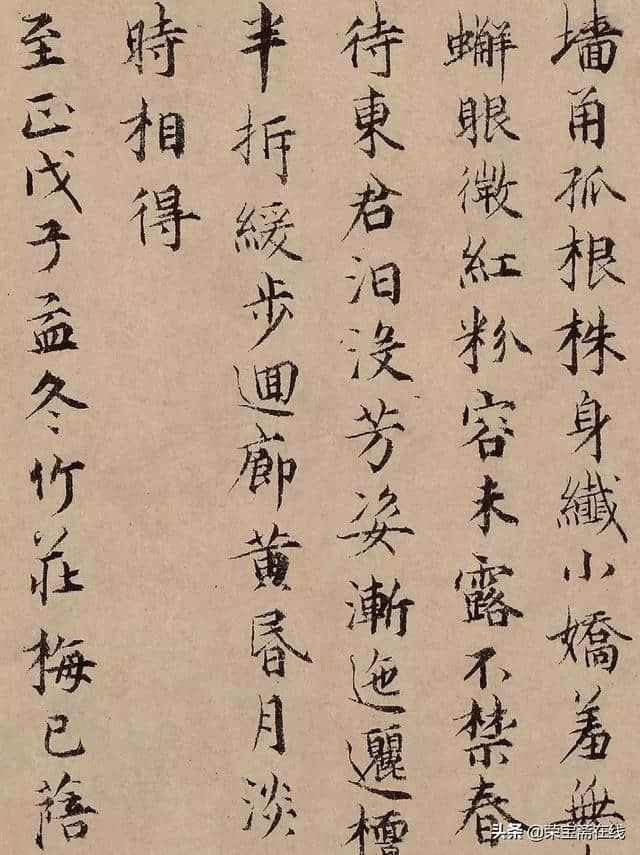 墻角孤根株身纖小嬌羞無
蠏眼微紅粉容未露不禁春
待東君汨没芳姿漸迤邐檀
半拆緩步迴廊黄昏月淡
時相得
至正戊子孟冬竹莊梅已蓓
头条 @荣宝斋在线